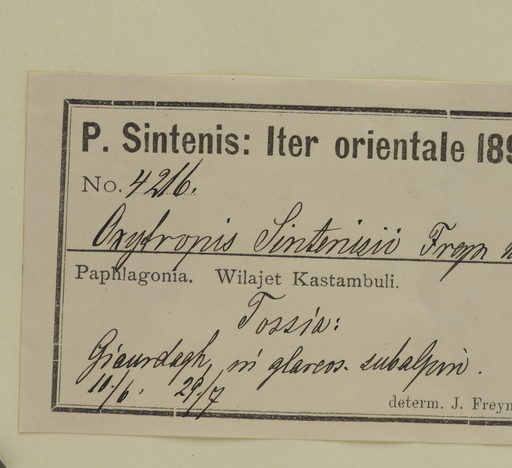 P. Sintenis: Iter orientale 189
No. 4216.
Oxytropis Sintenisii Freyn
Paphlagonia. Wilajet Kastambuli.
Tossia:
Giaurdagh, in glareos. subalpin.
10./6. 29./7
determ. J. Freyn